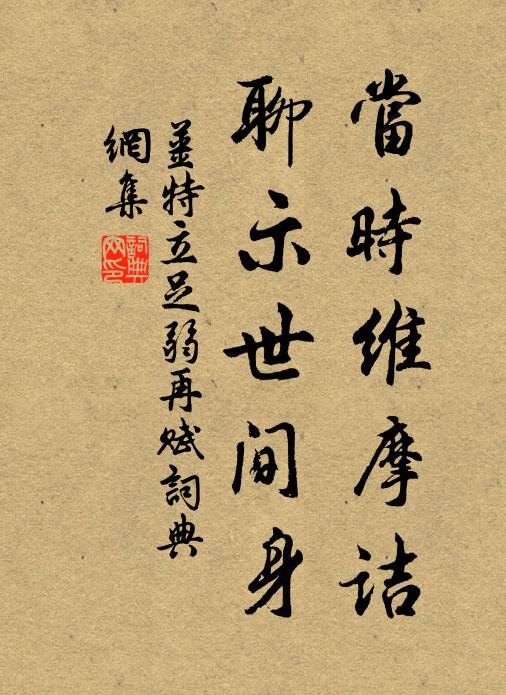 當時維摩詰
聊示世間身
薑特立足弱再賦詞典
網集
詞典
网印